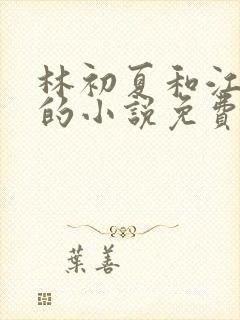 林初夏和江
的小說免費
葉善